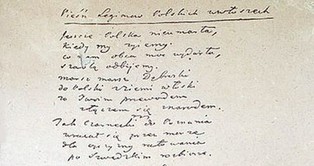 Pieśń Legionów Polskich we włoszech
Jeszcze Polska nie umarła,
kiedy my żyiemy
co nam obca moc wydarła,
szablą odbijemy.
marsz marsz Dąbroski
do Polski z ziemi włoski
za Twoim przewodem
złączem się z narodem.
Jak Czarnecki do Poznania
wracał się przez morze
dla oyczyzny ratowania
po szwedzkim rozbiorze.